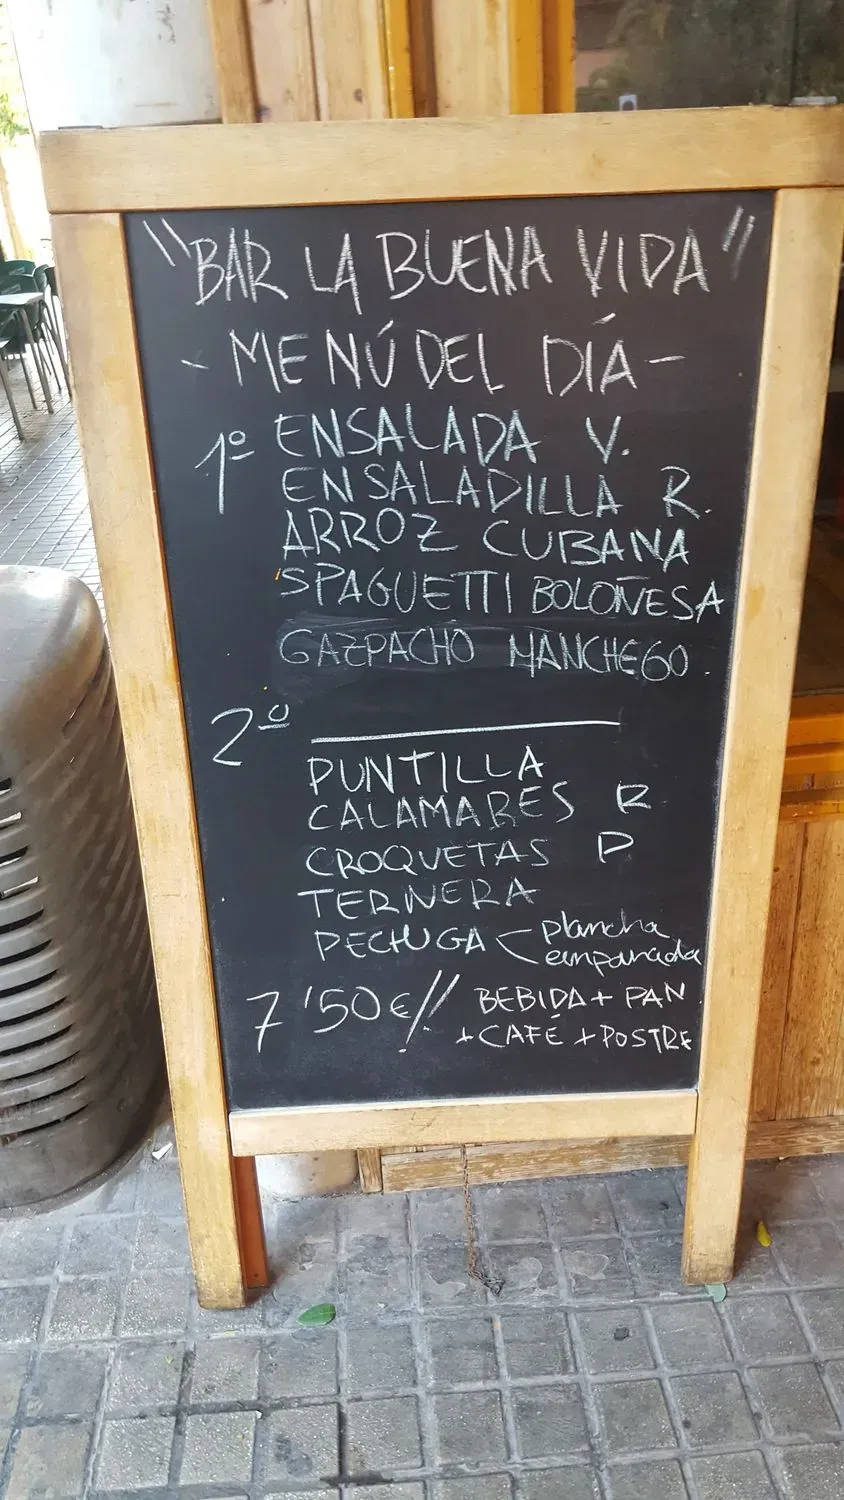 "BAR LA BUENA VIDA"
- MENÚ DEL DÍA -
1º ENSALADA V.
ENSALADILLA R.
ARROZ CUBANA
SPAGUETTI BOLOÑESA
GAZPACHO MANCHEGO.
2º
PUNTILLA
CALAMARES R
CROQUETAS P
TERNERA
PECHUGA < plancha
empanada
7'50€// BEBIDA + PAN
+ CAFÉ + POSTRE